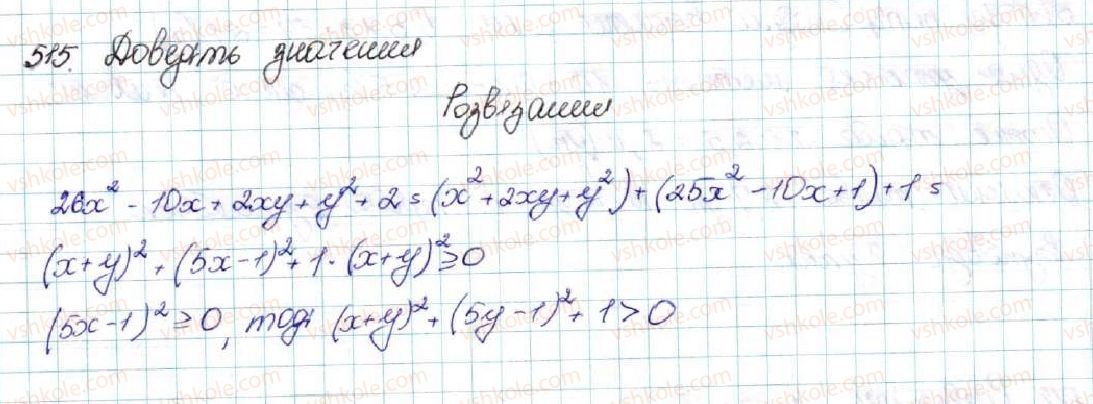 515. Доведіть значення
Розв'язання
26x² - 10x + 2xy + y² + 2 = (x² + 2xy + y²) + (25x² - 10x + 1) + 1 =
(x+y)² + (5x-1)² + 1. (x+y)² ≥ 0
(5x-1)² ≥ 0, тоді (x+y)² + (5y-1)² + 1 > 0